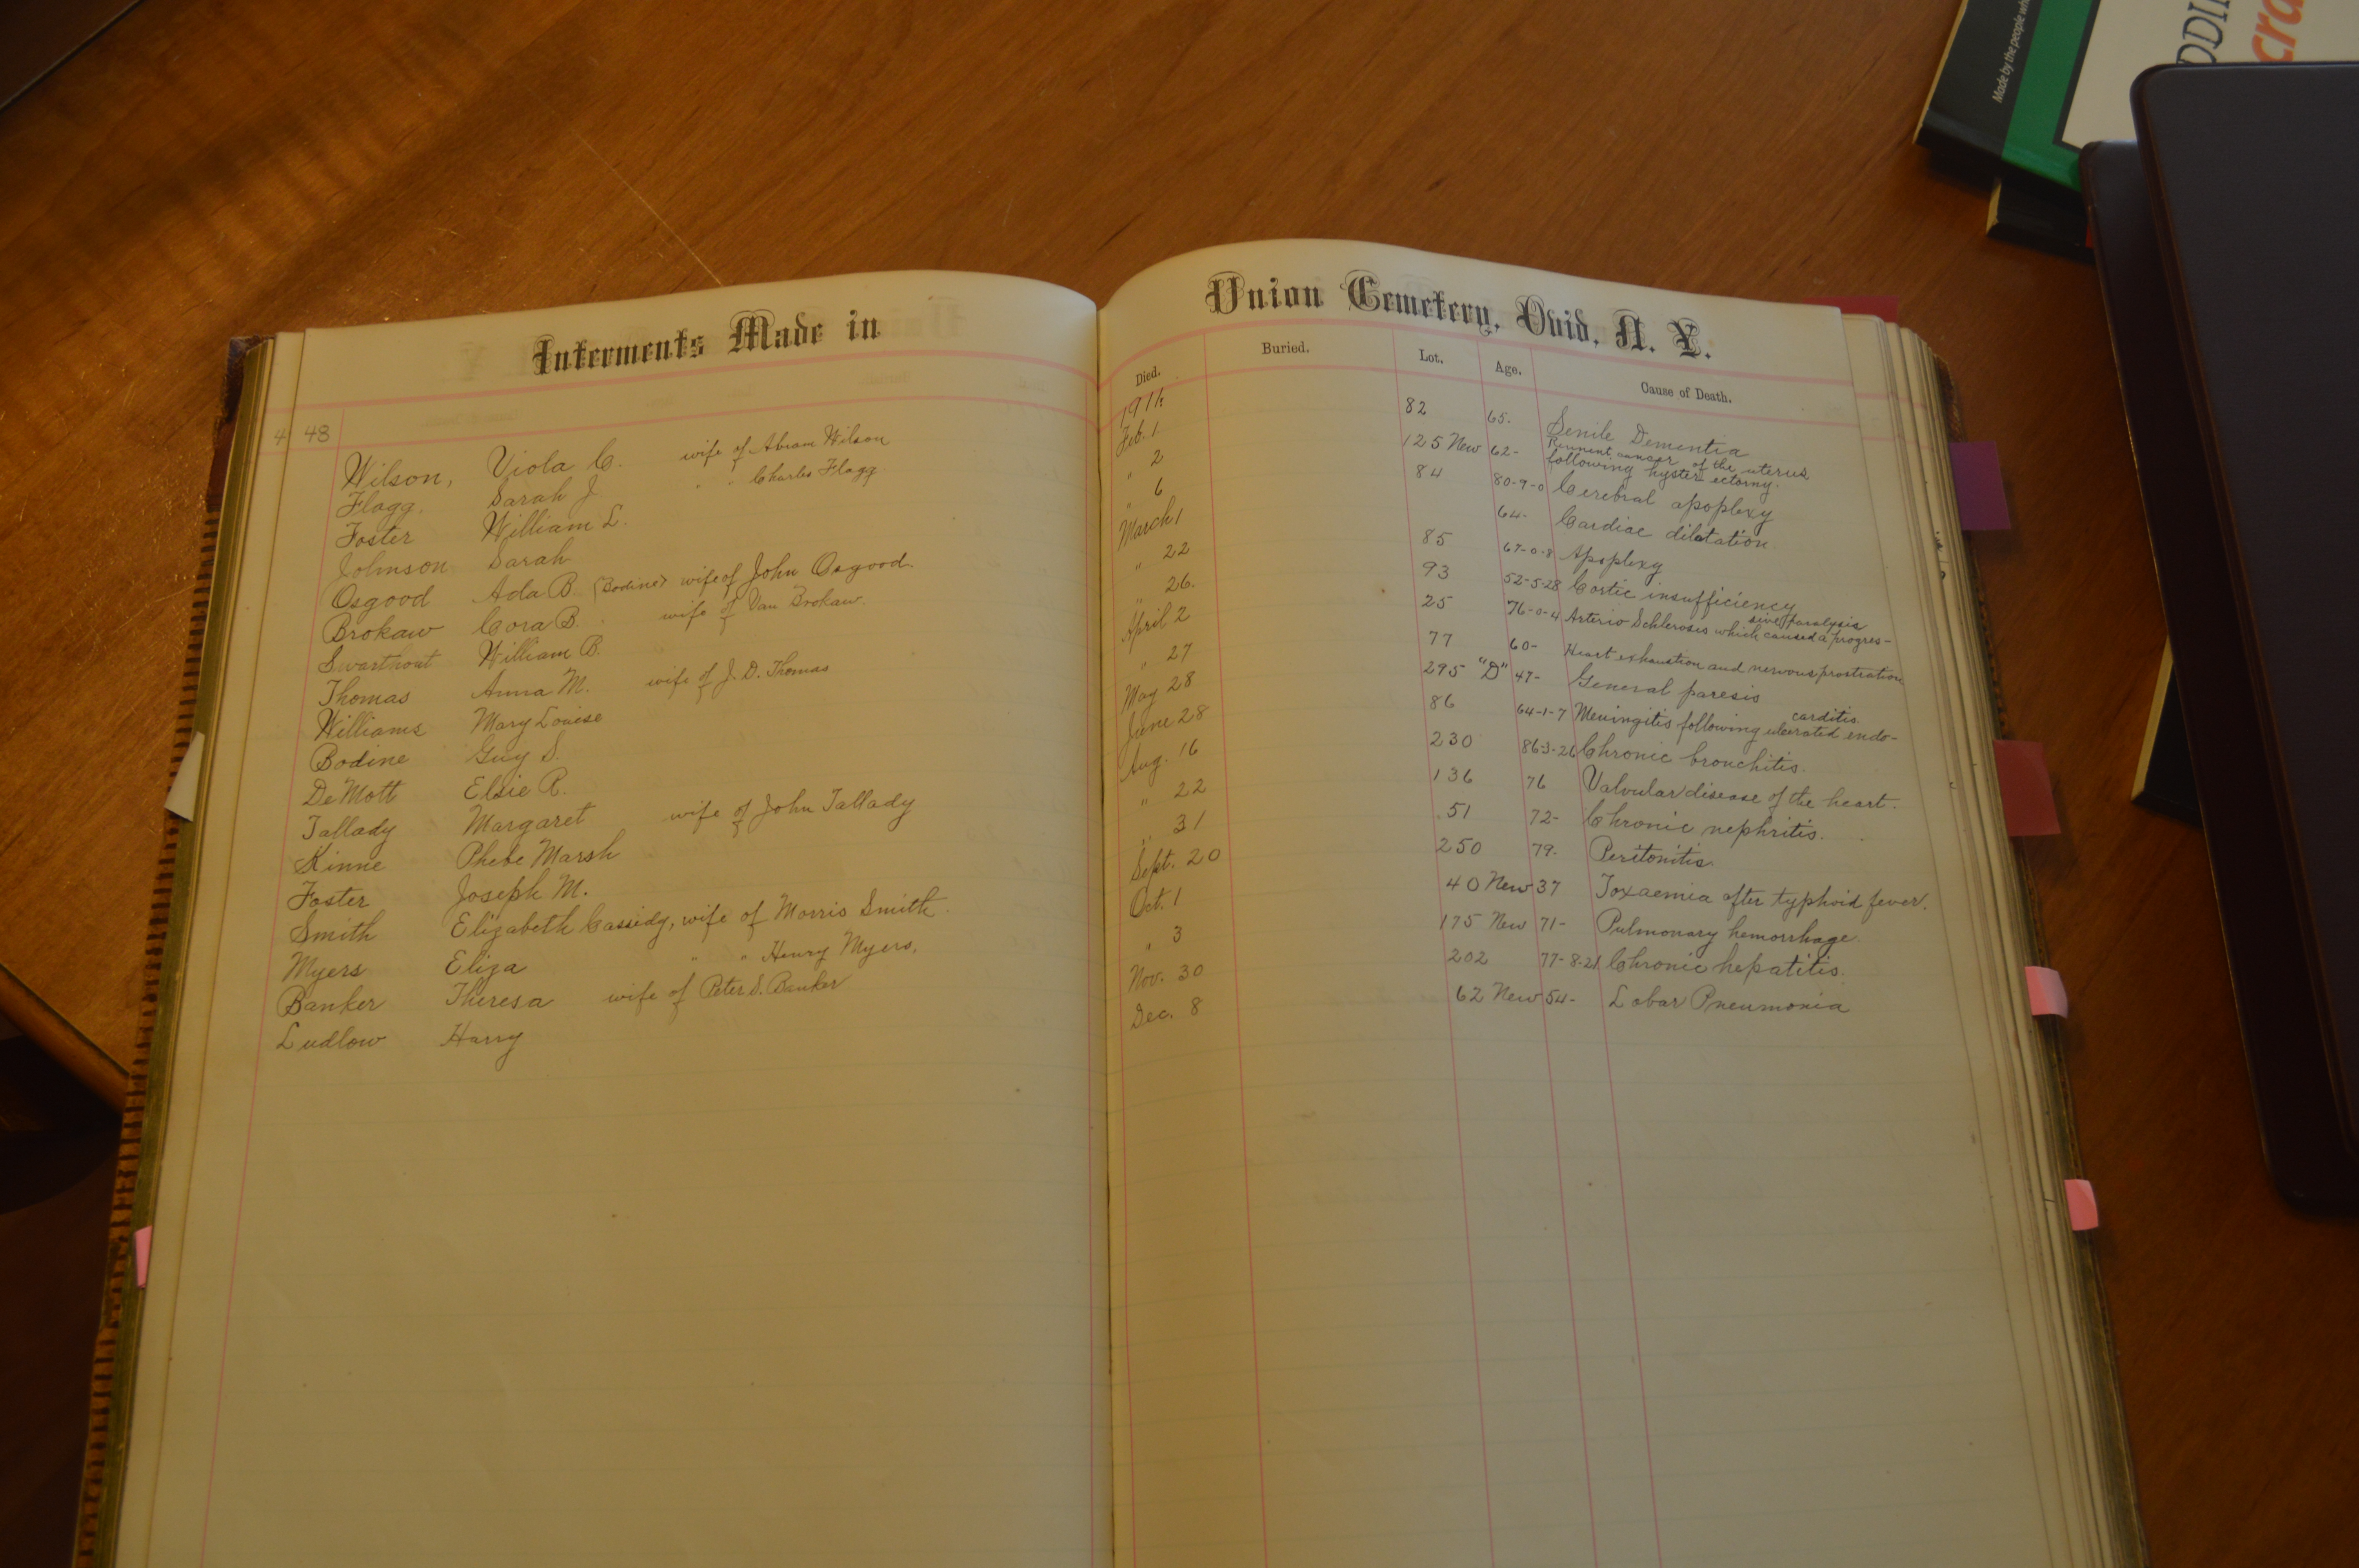 Interments Made in Union Cemetery, Ovid, N. Y.
Died. Buried. Lot. Age. Cause of Death.
4 48 1911.
Wilson, Viola C. wife of Abram Wilson Feb. 1 82 65. Senile Dementia
Flagg, Sarah J. " " Charles Flagg. " 2 125 New 62- cancer of the uterus
following hysterectomy.
Foster William L. " 6 84 80-9-0 Cerebral apoplexy
Johnson Sarah March 1 64- Cardiac dilatation
Osgood Ada B. (Bodine) wife of John Osgood. " 22 85 67-0-8 Apoplexy
Brokaw Cora B. wife of Van Brokaw. " 26. 93 52-5-28 insufficiency
Swarthout William B. April 2 25 76-0-4 Arterio Schlerosis which caused a progres-
sive paralysis
Thomas Anna M. wife of J. D. Thomas " 27 77 60- Heart exhaustion and nervous prostration
Williams Mary Louise May 28 295 "D" 47- General paresis
Bodine Guy S. June 28 86 64-1-7 Meningitis following ulcerated endo-
carditis.
DeMott Elsie R. Aug. 16 230 86-3-26 Chronic bronchitis.
Tallady Margaret wife of John Tallady " 22 136 76 Valvular disease of the heart.
Kinne Phebe Marsh " 31 51 72- Chronic nephritis.
Foster Joseph M. Sept. 20 250 79. Peritonitis.
Smith Elizabeth Cassidy, wife of Morris Smith. Oct. 1 40 New 37 Toxaemia after typhoid fever.
Myers Eliza " " Henry Myers, " 3 175 New 71- Pulmonary hemorrhage.
Banker Theresa wife of Peter S. Banker Nov. 30 202 77-8-21 Chronic hepatitis.
Ludlow Harry Dec. 8 62 New 54- Lobar Pneumonia
Made by the people wh